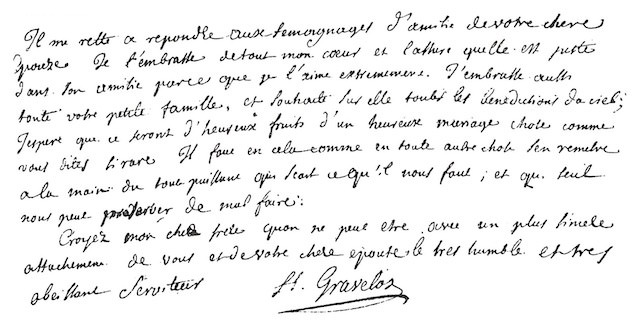 Il me reste a repondre aux temoignages d'amitie de votre chere
epouze Je l'embrasse de tout mon cœur et l'assure quelle est juste
dans son amitie parce que je l'aime extremement. J'embrasse aussi
toute votre petite famille, et souhaite sur elle toutes les benedictions du ciel;
J'espere que ce seront d'heureux fruits d'un heureux mariage chose comme
vous dites si rare Il faut en cela comme en toute autre chose s'en remetre
a la main du tout puissant qui scait ce qu'il nous faut; et qui seul
nous peut preserver de mal faire:
Croyez mon cher frere quon ne peut etre avec un plus sincere
attachement de vous et de votre chere epouse le tres humble et tres
obeissant Serviteur St. Gravelos